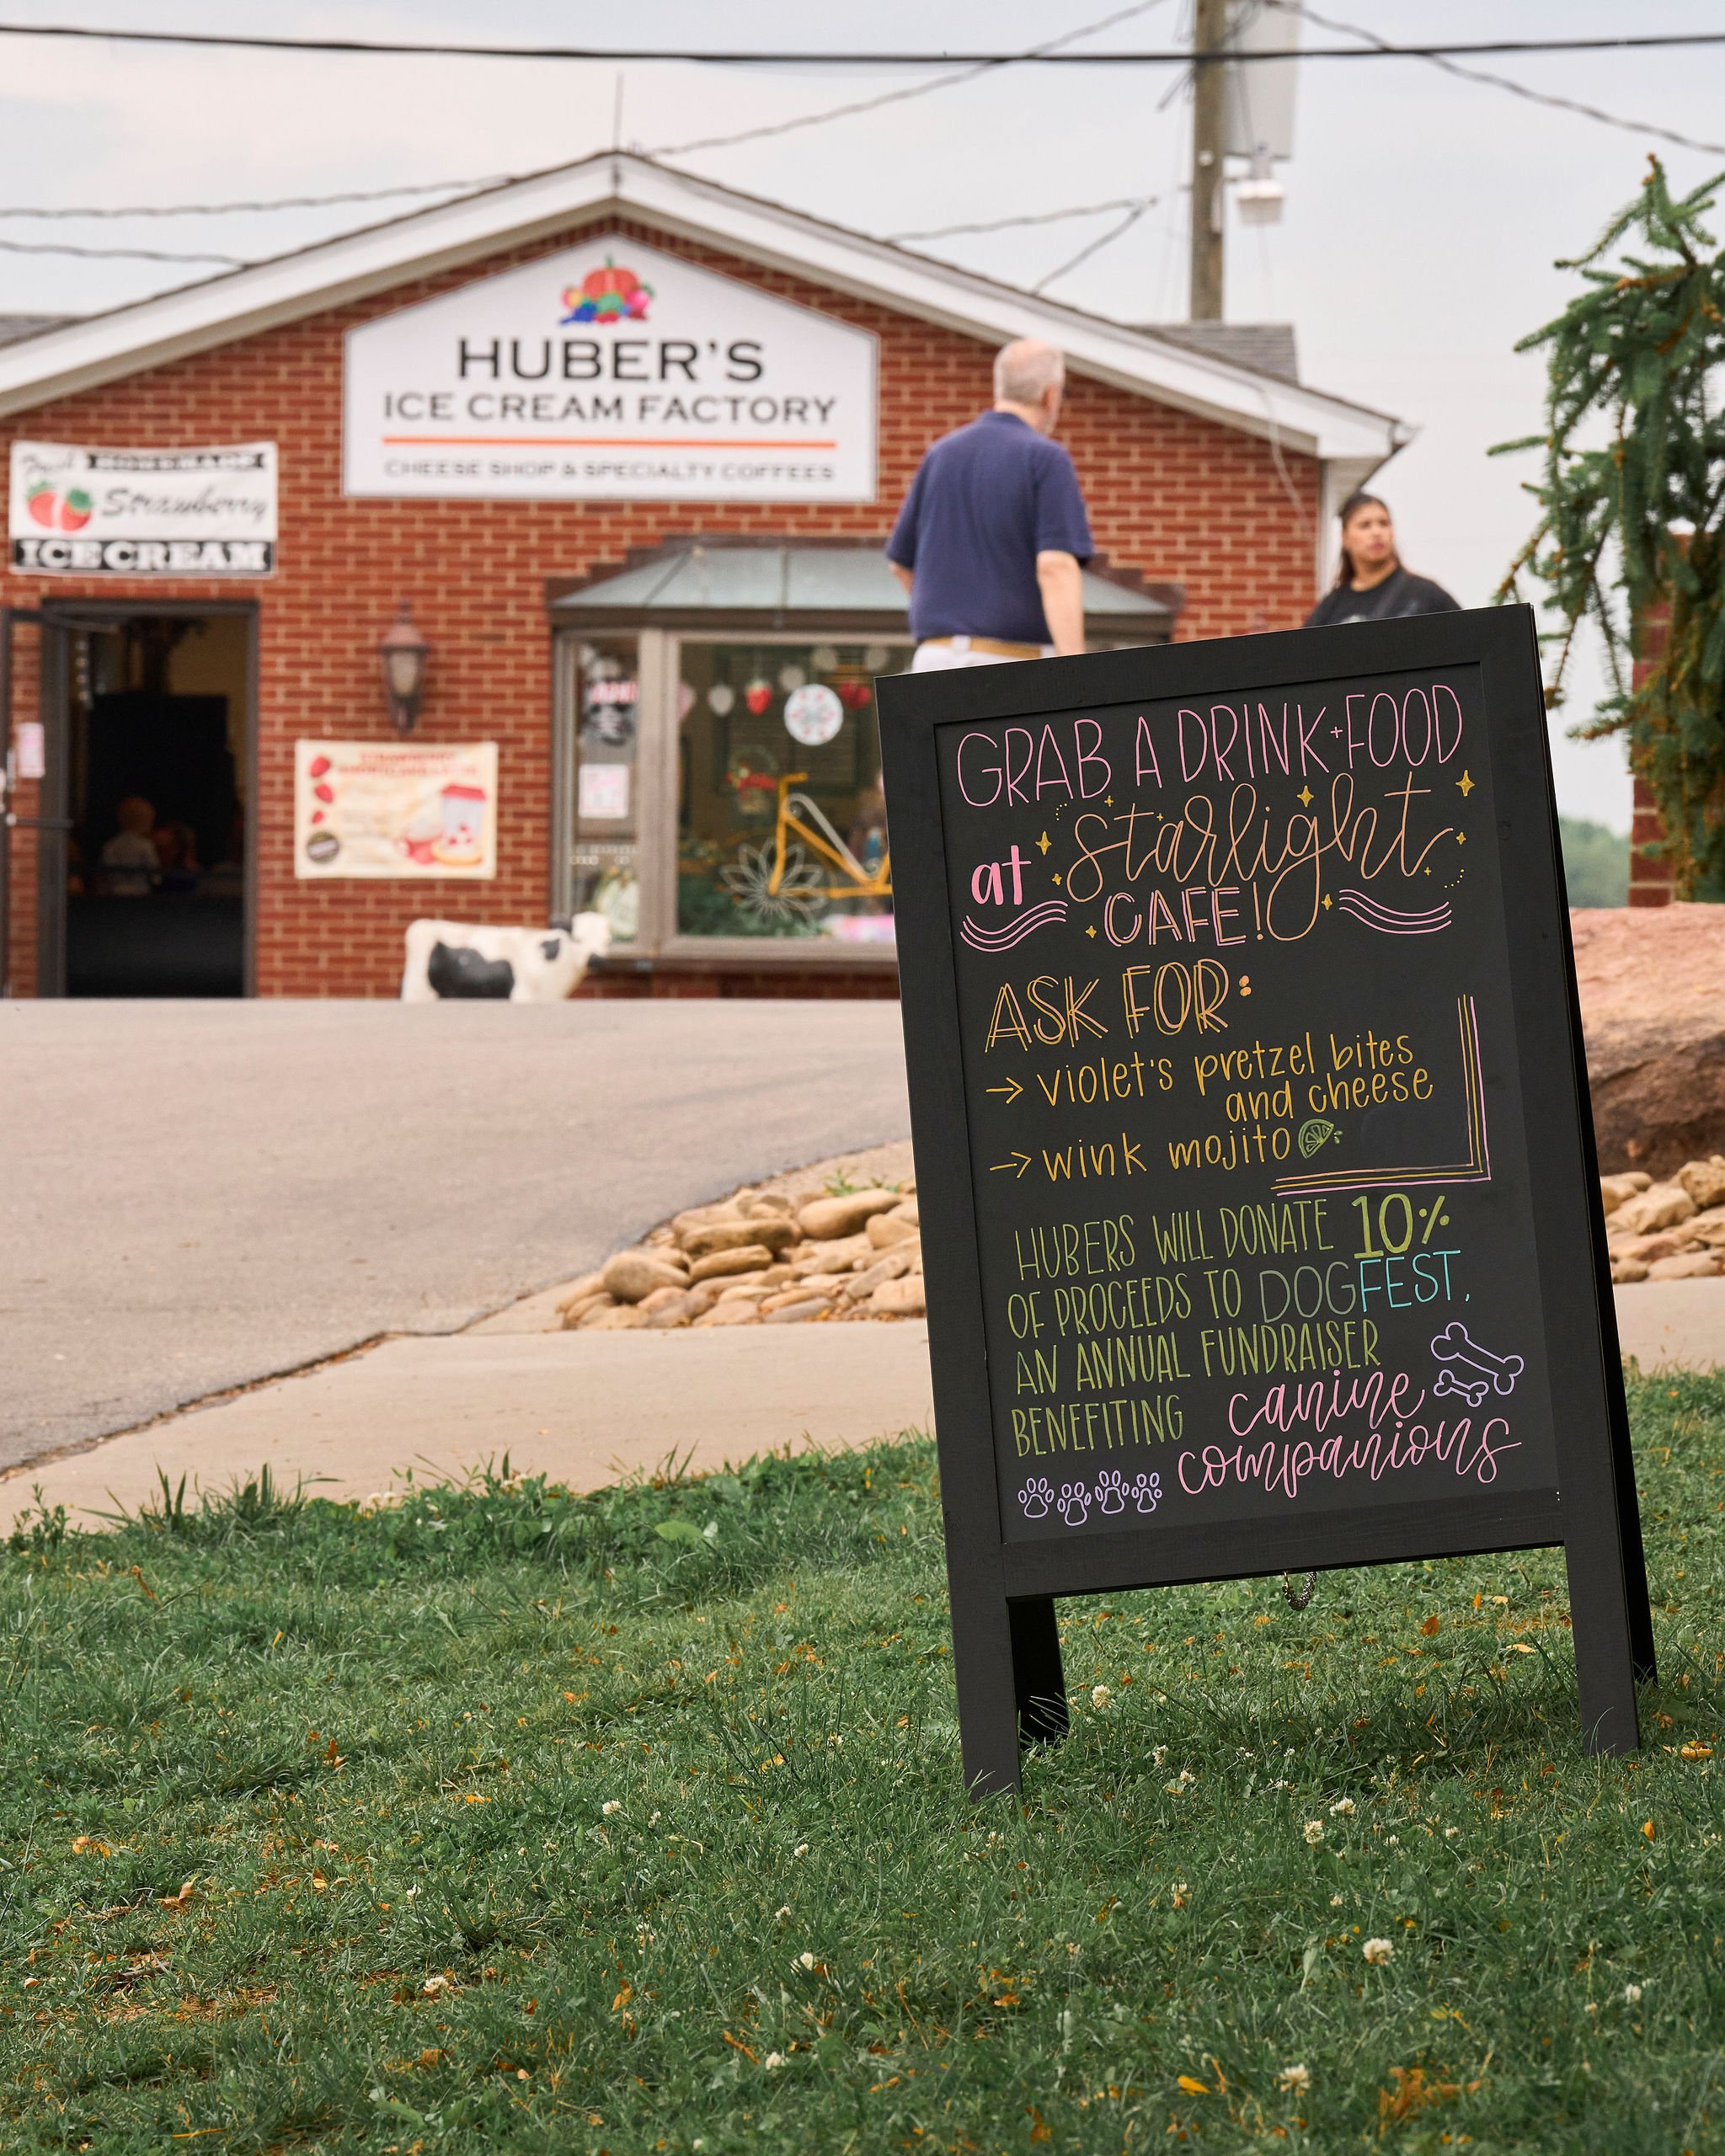 HUBER'S
ICE CREAM FACTORY
CHEESE SHOP & SPECIALTY COFFEES
Fresh HOMEMADE
Strawberry
ICE CREAM
GRAB A DRINK + FOOD
at starlight
CAFE!
ASK FOR:
→ violet's pretzel bites
and cheese
→ wink mojito
HUBERS WILL DONATE 10%
OF PROCEEDS TO DOGFEST,
AN ANNUAL FUNDRAISER
BENEFITING canine
companions